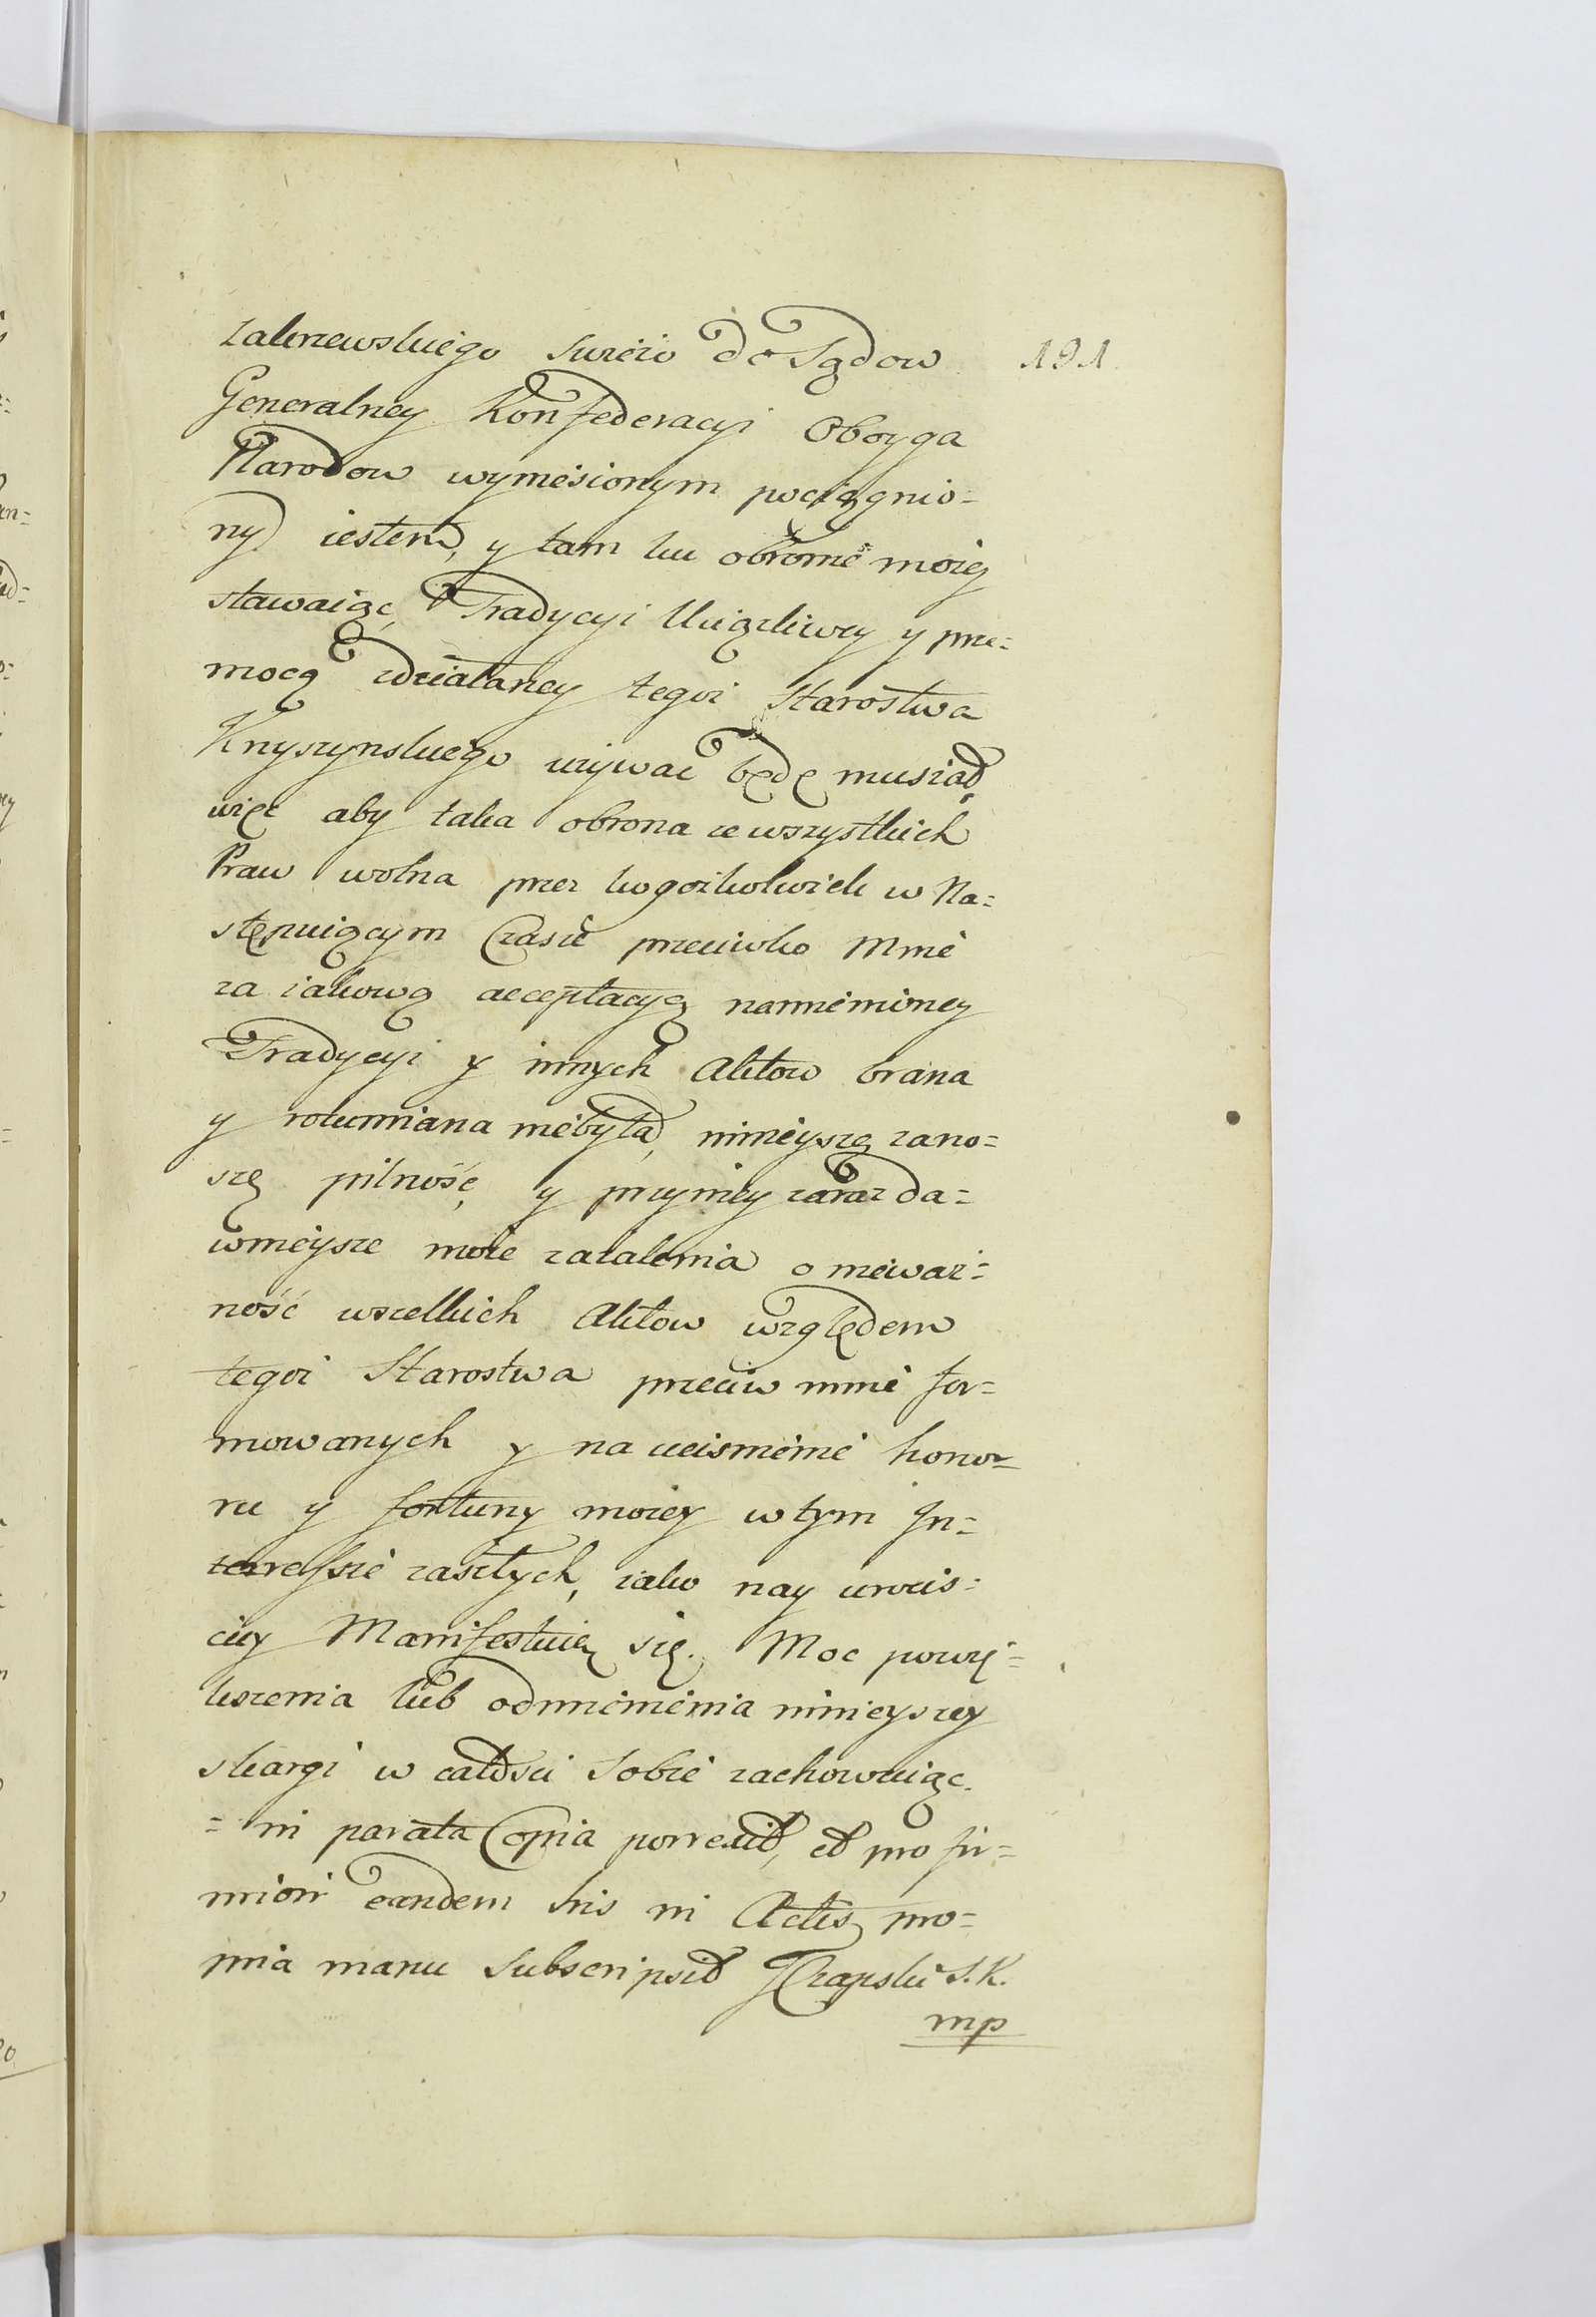 Zakrzewskiego swieżo do Sądow 191
Generalney Konfederacyi Oboyga
Narodow wyniesionym pociągnio=
ny iestem, y tam ku obronie moiey
stawaiąc, Tradycyi Uciązliwey y prze=
mocą zdziałaney tegoż Starostwa
Knyszynskiego używać będę musiał,
więc aby taka obrona ze wszystkich
Praw wolna przez kogożkolwiek w Na=
stępuiącym Czasie przeciwko Mnie
za iakową acceptacyą namienioney
Tradycyi y innych Aktow brana
y rozumiana niebyła, ninieyszą zano=
szę pilność, y przyniey zaraz da=
wnieysze moie zażalenia o nieważ=
ność wszelkich Aktow względem
tegoż Starostwa przeciw mnie for=
mowanych y na uciśnienie hono=
ru y fortuny moiey w tym In=
teressie zaszłych, iako nay urocis=
ciey Manifestuię się. Moc powię=
kszenia lub odmienienia ninieyszey
skargi w całości sobie zachowuiąc.
= in parata Copia porrexit, et pro fir=
miori eandem his in Actis pro=
pria manu subscripsit JCzapski S. K.
mp